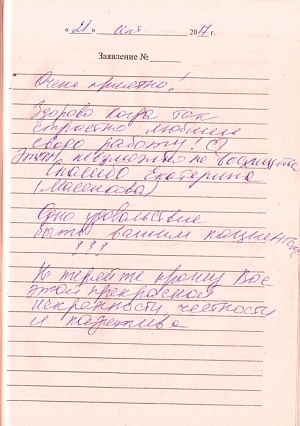 «21» Сент 2017 г.
Заявление №
Очень приятно!
Здорово когда так
страстно любит
свою работу! :)
Этим невозможно не восхищаться
Спасибо Екатерина
Одно удовольствие
быть вашим пациентом
!!!
Не теряйте прошу Вас
этой прекрасной
искренности, честности
и позитива